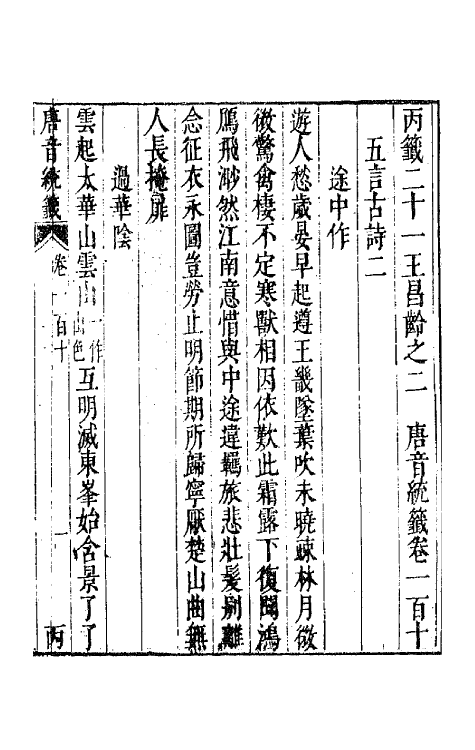 丙籤二十一王昌齡之二　唐音統籤卷一百十
五言古詩二
途中作
遊人愁歲晏早起遵王畿墜葉吹未曉疎林月微
微驚禽棲不定寒獸相因依歎此霜露下復聞鴻
鴈飛渺然江南意惜與中途違羈旅悲壯髮別離
念征衣永圖豈勞止明節期所歸寧厭楚山曲無
人長掩扉
過華陰
雲起太華山雲山一作山色互明滅東峯始含景了了
唐音統籤　卷一百十　一　丙